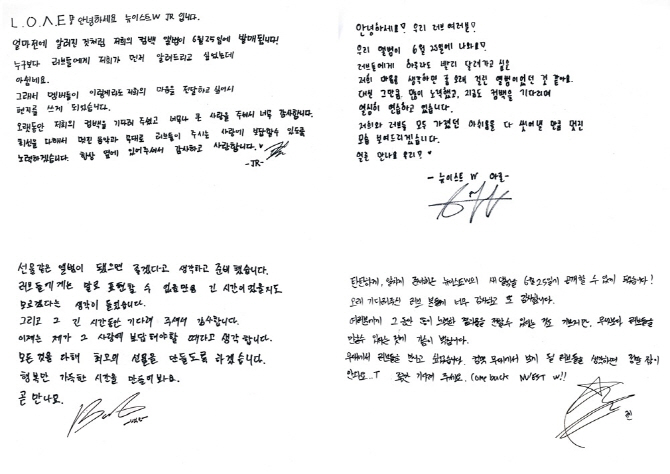 L.O.Λ.E 안녕하세요 뉴이스트W JR 입니다.
얼마전에 알려진 것처럼 저희의 컴백 앨범이 6월25일에 발매됩니다!
누구보다 러브들에게 저희가 먼저 알려드리고 싶었는데
아쉽네요.
그래서 멤버들이 이렇게라도 저희의 마음을 전달하고 싶어서
편지를 쓰게 되었습니다.
오랫동안 저희의 컴백을 기다려 주시고 너무나 큰 사랑을 주셔서 너무 감사합니다.
최선을 다해서 멋진 음악과 무대로 러브들이 주시는 사랑에 보답할수 있도록
노력하겠습니다. 항상 옆에 있어주셔서 감사하고 사랑합니다.♥
-JR-
안녕하세요? 우리 러브 여러분?
우리 앨범이 6월 25일에 나와요?
러브들에게 하루라도 빨리 달려가고 싶은
저희 마음을 생각하면 좀 오래 걸린 앨범이었던 것 같아요.
대신 그만큼 많이 노력했고, 지금도 컴백을 기다리며
열심히 연습하고 있습니다.
저희와 러브들 모두 가졌던 아쉬움을 다 씻어낼 만큼 멋진
모습 보여드리겠습니다.
얼른 만나요 우리? ♥
- 뉴이스트 W 아론 -
선물같은 앨범이 됐으면 좋겠다고 생각하고 준비했습니다.
러브들에게는 말로 표현할 수 없을만큼 긴 시간이었을지도
모르겠다는 생각이 들었습니다.
그리고 그 긴 시간동안 기다려 주셔서 감사합니다.
이제는 제가 그 사랑에 보답해야할 때라고 생각합니다.
모든 것을 다해 최고의 선물을 만들도록 하겠습니다.
행복만 가득한 시간을 만들어봐요.
곧 만나요.
뉴이스트W의 새 앨범을 6월25일에 공개할 수 있게 되었습니다!
오래 기다려주신 러브 분들께 너무 감사하고 또 감사합니다.
여러분에게 그 동안
만날수 있다는 것에
무대에서 러브들을 만나고 싶었습니다. 컴백 무대에서 보게 될 러브들을 생각하면 정말 잠이
안와요...T 조금만 기다려 주세요. Come back NU'EST W!!
렌